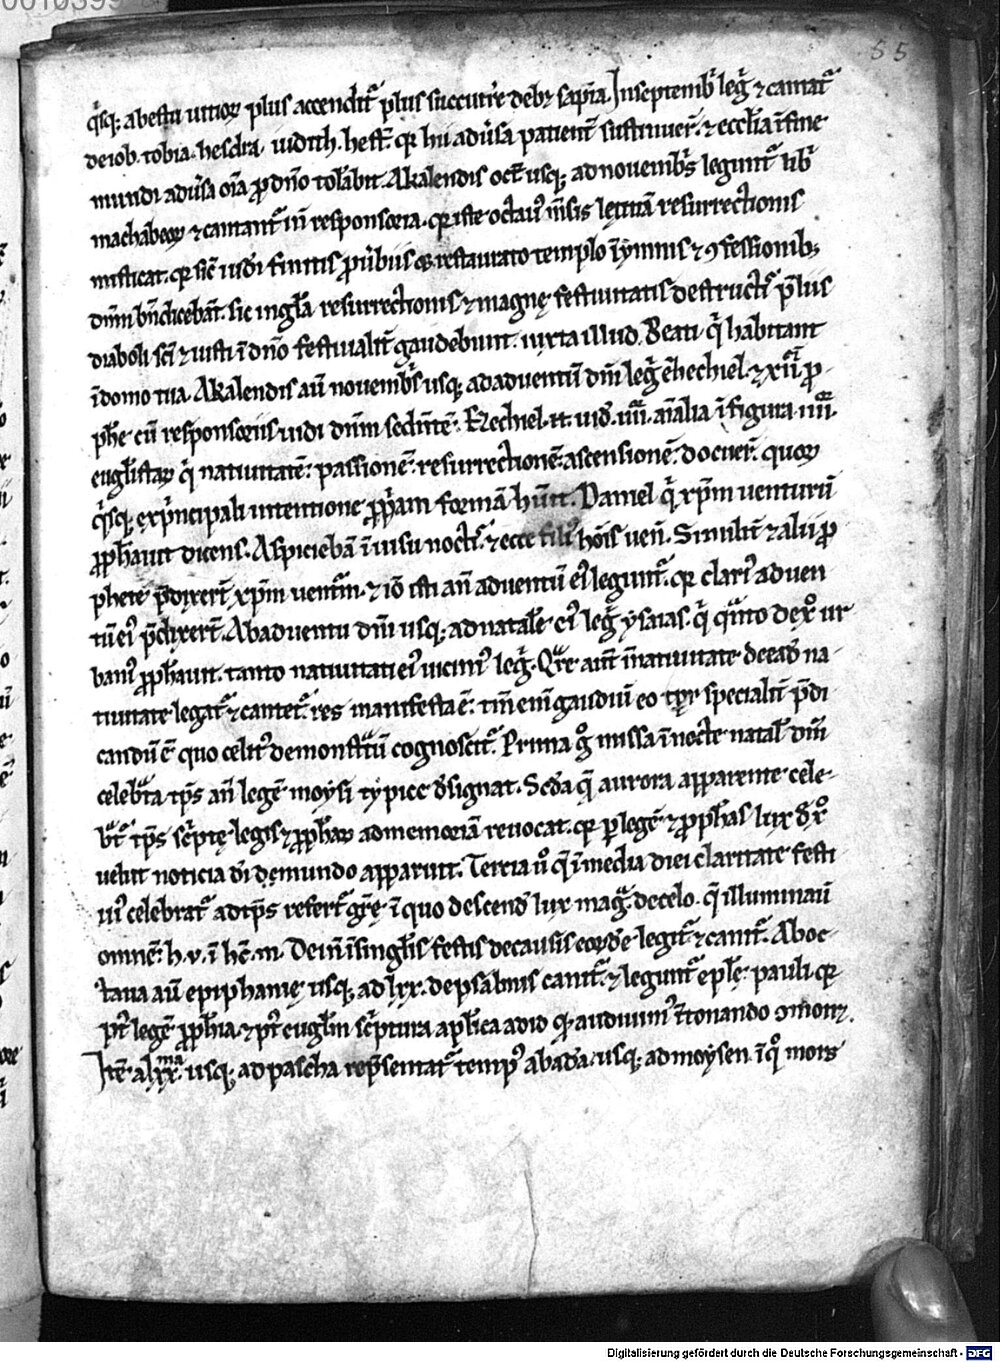 55
q̄sq; ab estu uitioꝝ plus accendit᷑ plus succurre͛ debꝫ sapīa. In septemb᷑ leḡ ⁊ cantat᷑
de iob. tobia. hesdra. iudith. hest᷑. qꝛ hii adūsa patient᷑ sustinuer̄. ⁊ ecclīa ī fine
mundi adūsa oīa ꝓ dn̄o tolābit. A kalendis oct᷑ usq; ad nouemb᷑s legunt᷑ lib᷑
machabeoꝝ ⁊ cantant᷑ in̄ responsoria. qꝛ iste octau᷒ m̄sis letitiā resurrectionis
misticat. qꝛ sic̄ iud̄i finitis p̄liis restaurato templo ī ymnis ⁊ ꝯfessionib;
dn̄m bn̄dicebāt. sic in gl̄a resurrectionis ⁊ magnę festiuitatis destructi᷑ p̄liis
diaboli sc̄i ⁊ iusti ī dn̄o festiualit᷑ gaudebunt. iuxta illud. Beati q̄ habitant
ī domo tua. A kalendis aū nouemb᷑s usq; ad aduentū dn̄i leḡ ezechiel. ⁊ xii ꝓ-
phe cū responsoriis uidi dn̄m sedēte᷑. Ezechiel. n. uid᷑. iiii. aīalia ī figura iiii.
eugl̄istaꝝ q̄ natiuitatē. passionē. resurrectionē. ascensionē. docuer̄. quoꝝ
q̄sq; ex p̄ncipali intentione ꝓp̄am formā hūit. Daniel q̄ xp̄m venturū
ꝓph̄auit dicens. Aspiciebā ī uisu nocti᷑. ⁊ ecce fili᷒ hoīs ueń. Similit᷑ ⁊ alii ꝓ
phete p̄dixer̄t xp̄m uent᷑m. ⁊ iō isti an̄ aduentū ei᷒ legunt᷑. qꝛ clari᷒ aduen
tū ei᷒ p̄dixer̄t. Ab aduentu dn̄i usq; ad natale ei᷒ leḡ ysaias. q̄ q̄nto dex᷒ ur
bani᷒ ꝓph̄auit. tanto natiuitati ei᷒ uicini᷒ leḡ. Q̄re aut̄ ī natiuitate de ead̄ na
tiuitate legat᷑ ⁊ cantet᷑. res manifesta ē. tm̄ eni᷑ gaudiū eo tp̄r specialit᷑ p̄di
candū ē quo celit᷒ demonst᷑tū cognoscit᷑. Prima ḡ missa ī nocte natal᷑ dn̄i
celeb᷑ta tp̄s an̄ legē moysi typice d̄signat. Sc̄da q̄ aurora apparente cele-
b᷑t᷑ tp̄s sc̄ptę legis ⁊ ꝓph̄aꝝ ad memoriā reuocat. qꝛ p legē ⁊ ꝓphas lux
uelut noticia d̄i de mundo apparuit. Tercia ū q̄ ī media diei claritate festi
ui᷒ celebrat᷑ ad tp̄s refert᷑ gr̄ę ī quo descend᷑ lux magna de celo. q̄ illuminat
omnē. h. v. ī hc̄. m. Dein̄ ī singl̄is festis de causis eorde legit᷑ ⁊ canit᷑. Ab oc-
taua aū epiphanię usq; ad lxx. de psalmis canit᷑. ⁊ legunt᷑ eplę pauli. qꝛ
pt᷑ legē ꝓph̄ia. ⁊ pt᷑ eugl̄m sc̄ptura ap̄lica
Itē a lxx.ma usq; ad pascha rep̄sentat᷑ temp᷒ ab ada. usq; ad moysen. ī q᷒ mors
Digitalisierung gefördert durch die Deutsche Forschungsgemeinschaft - DFG